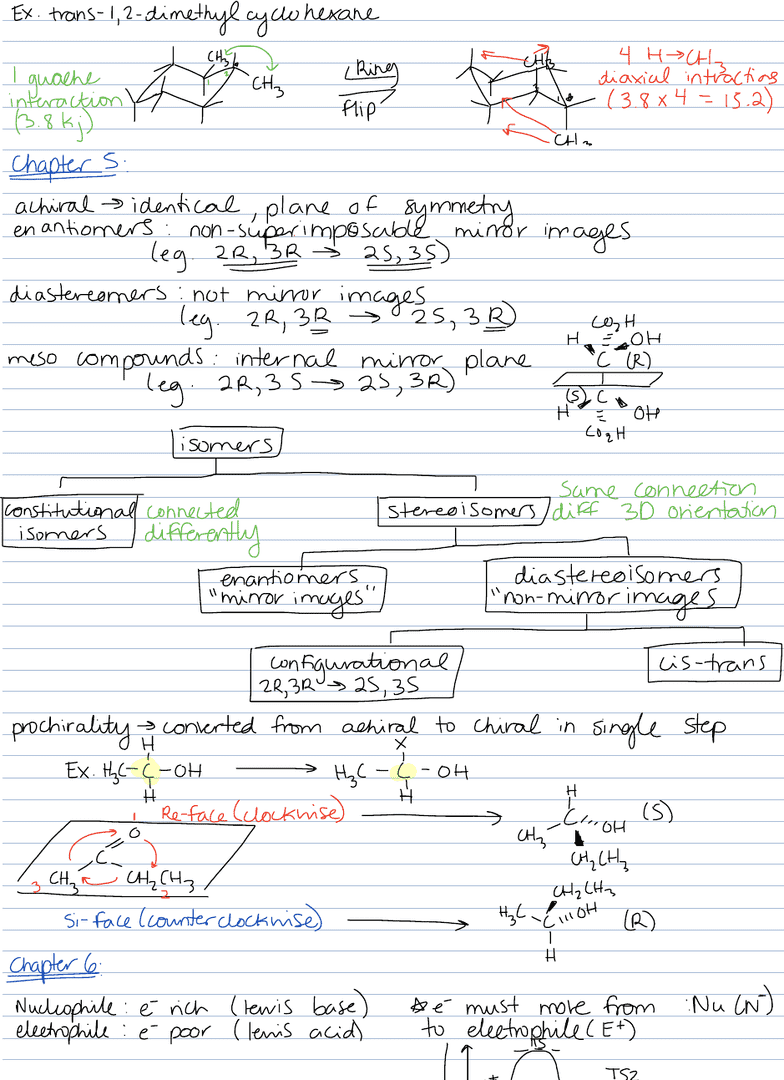 Ex. trans-1,2-dimethyl cyclohexane
1 guache
interaction
(3.8 kj)
CH3
CH3
Ring
flip
CH3
CH3
4 H→CH3
diaxial intractions
(3.8 x 4 = 15.2)
Chapter 5:
achiral → identical, plane of symmetry
enantiomers: non-superimposable mirror images
(eg. 2R, 3R → 2S, 3S)
diastereomers: not mirror images
(eg. 2R, 3R → 2S, 3R)
meso compounds: internal mirror plane
(eg. 2R, 3S → 2S, 3R)
CO2H
H OH
C (R)
(S) C
H OH
CO2H
isomers
constitutional
isomers
connected
differently
stereoisomers
Same connection
diff 3D orientation
enantiomers
"mirror images"
diastereoisomers
"non-mirror images
configurational
2R,3R → 2S, 3S
cis-trans
prochirality → converted from achiral to chiral in single step
H
Ex. H3C-C-OH
H
X
H3C-C-OH
H
Re-face (clockwise)
1
O
C
3 CH3 CH2CH3
2
H
CH3 C OH (S)
CH2CH3
Si-face (counterclockwise)
CH2CH3
H3C C OH (R)
H
Chapter 6:
Nucleophile: e- rich (lewis base)
electrophile: e- poor (lewis acid)
☆e- must move from :Nu (N-)
to electrophile (E+)
TS2